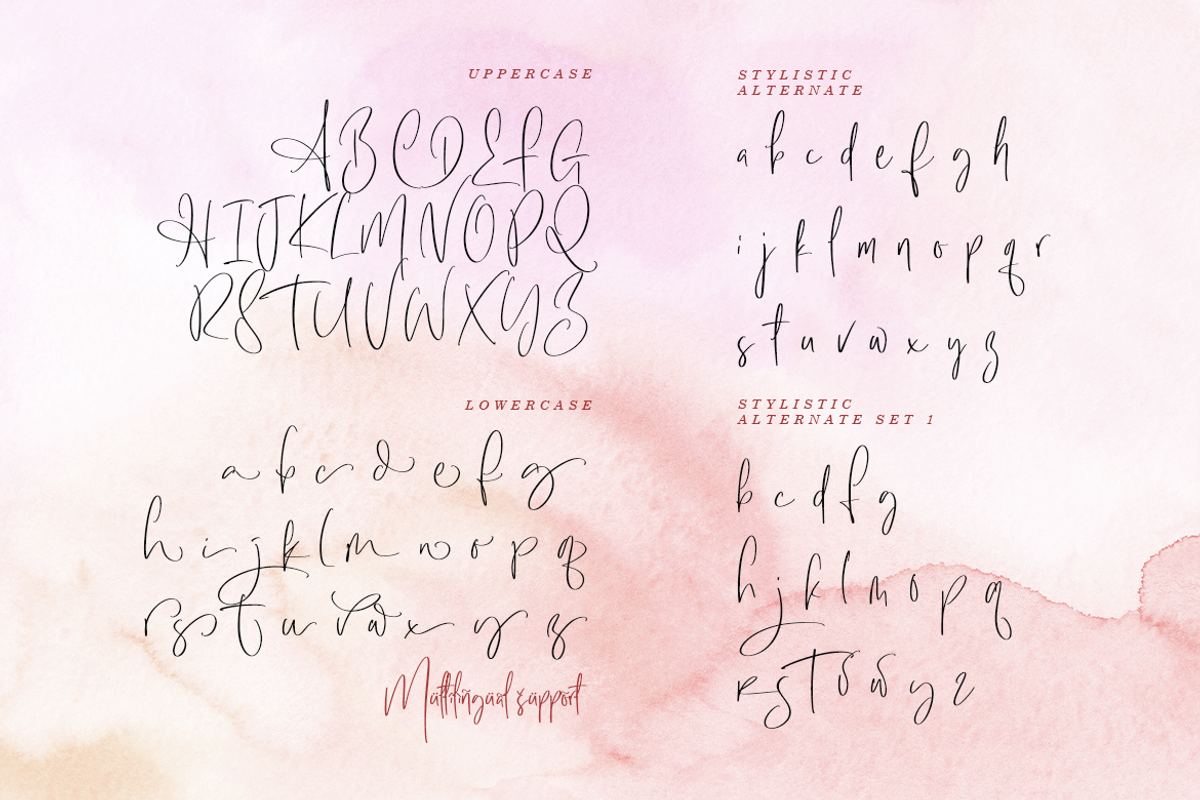 UPPERCASE
A B C D E F G
H I J K L M N O P Q
R S T U V W X Y Z
LOWERCASE
a b c d e f g
h i j k l m n o p q
r s t u v w x y z
Multilingual support
STYLISTIC
ALTERNATE
a b c d e f g h
i j k l m n o p q r
s t u v w x y z
STYLISTIC
ALTERNATE SET 1
b c d f g
h j k l m o p q
r s t v w y z